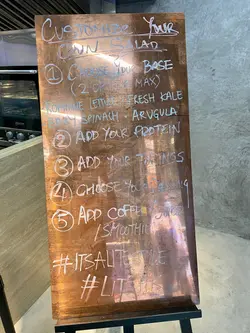 CUSTOMIZE YOUR
OWN SALAD
1 CHOOSE YOUR BASE
(2 OPT MAX)
ROMAINE LETTUCE FRESH KALE
BABY SPINACH ARUGULA
2 ADD YOUR PROTEIN
3 ADD YOUR TOPPINGS
4 CHOOSE YOUR DRESSING
5 ADD COFFEE
/SMOOTHIE
#ITSALIFESTYLE